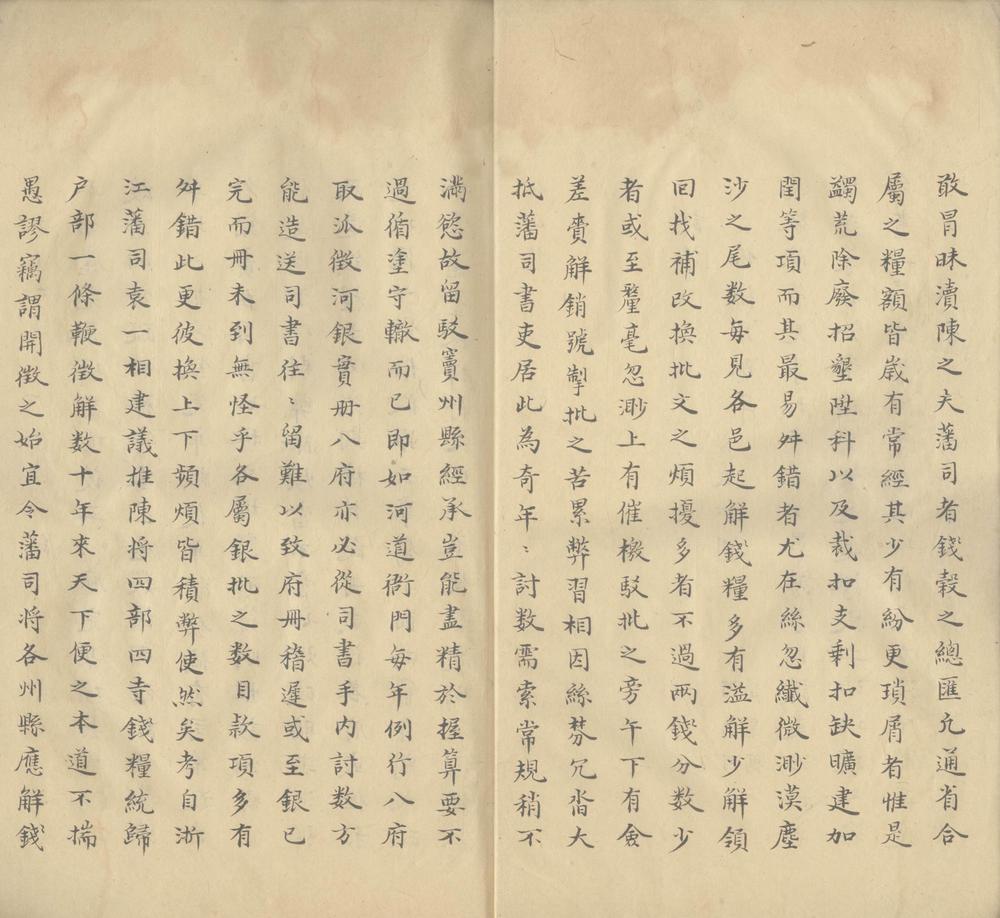 敢冒昧瀆陳之夫藩司者錢穀之總匯凢通省合
屬之糧額皆歳有常經其少有紛更瑣屑者惟是
蠲荒除廢招墾陞科以及裁扣支剩扣缺曠建加
閏等項而其最易舛錯者尤在絲忽纎微渺漠塵
沙之尾数每見各邑起解錢糧多有溢解少解領
回找補改換批文之煩擾多者不過兩錢分数少
者或至釐毫忽渺上有催檄駁批之旁午下有僉
差賫解銷號掣批之苦累弊習相因絲棼冗沓大
抵藩司書吏居此為奇年〻討数需索常規稍不
滿慾故留駁竇州縣經承豈能盡精於握算要不
過循塗守轍而已即如河道衙門每年例行八府
取派徴河銀實册八府亦必從司書手内討数方
能造送司書往〻留難以致府冊稽遲或至銀已
完而冊未到無怪乎各屬銀批之数目款項多有
舛錯此更彼換上下頻煩皆積弊使然矣考自浙
江藩司袁一相建議推陳將四部四寺錢糧統歸
户部一條鞭徴解数十年來天下便之本道不揣
愚謬竊謂開徴之始宜令藩司将各州縣應解錢